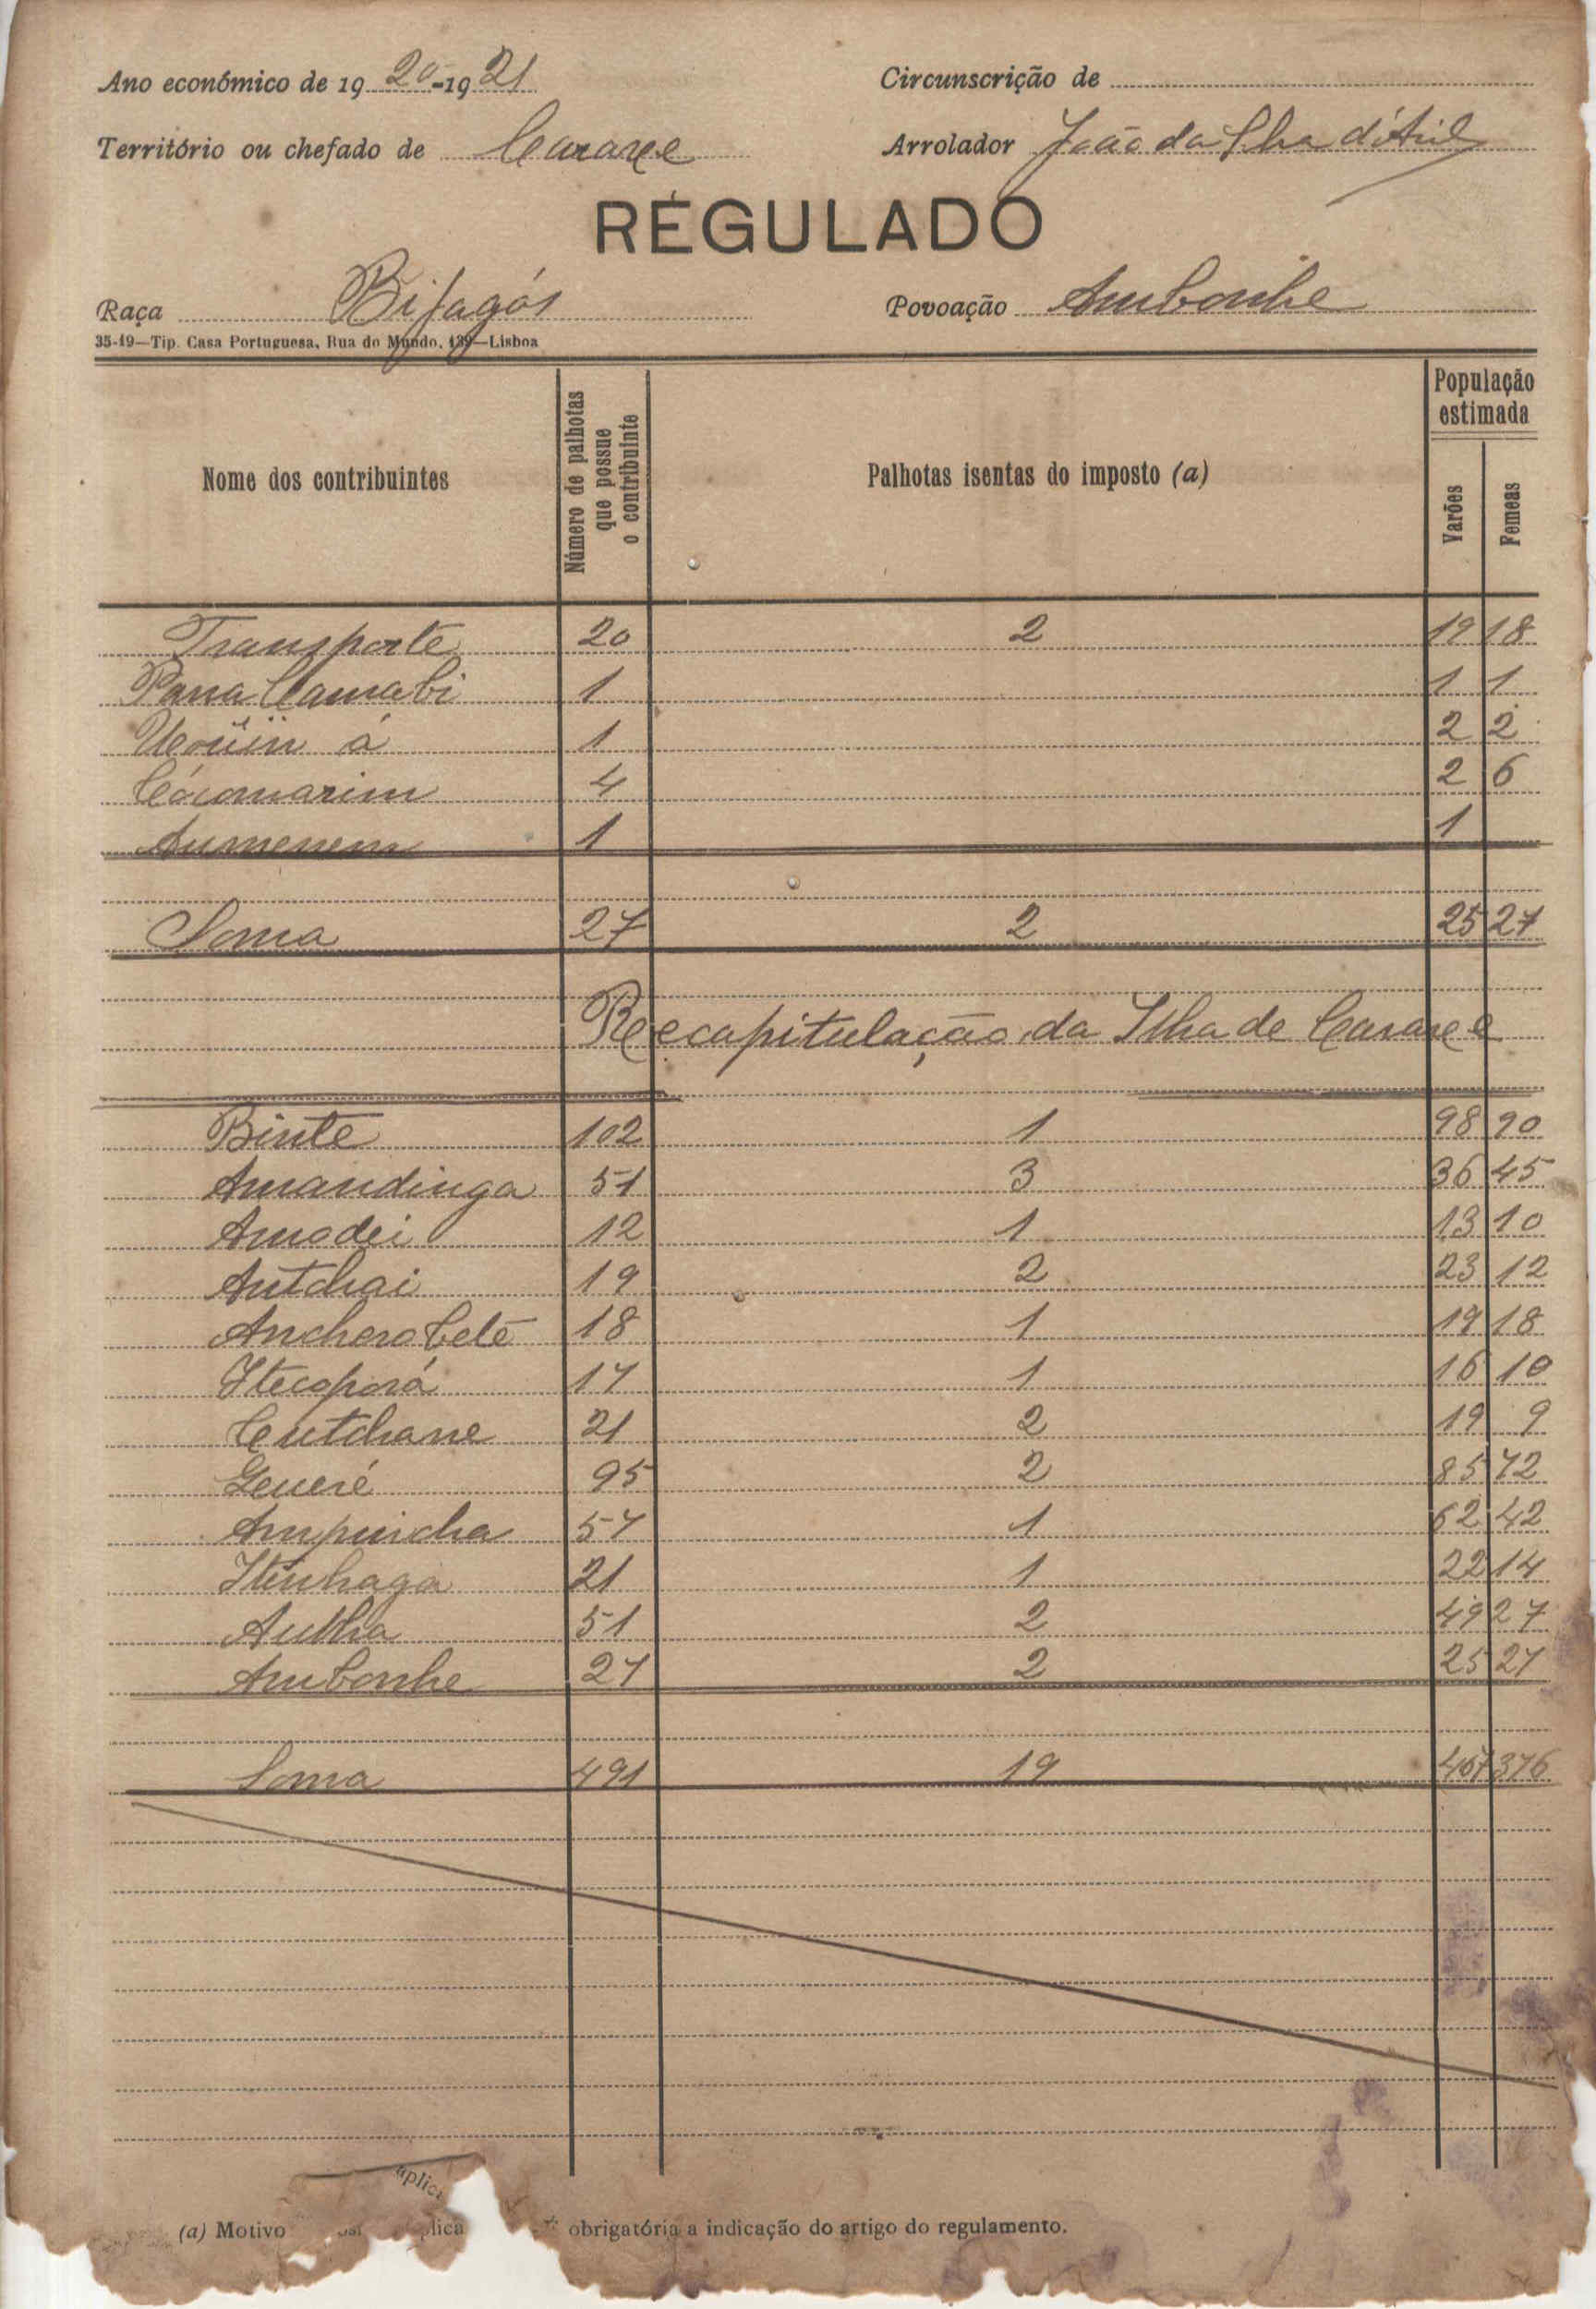 Ano económico de 1920-1921
Circunscrição de
Território ou chefado de Cararxe
Arrolador João da Ilha d'Avil
REGULADO
Raça Bijagós
Povoação Ambonhe
35-19—Tip. Casa Portuguesa, Rua do Mundo, 139—Lisboa
Nome dos contribuintes
Número de palhotas que possue o contribuinte
Palhotas isentas do imposto (a)
População estimada
Varões
Femeas
Transporte 20 2 19 18
Pana Camabi 1 1 1
á 1 2 2
Cócomarim 4 2 6
Aumenem 1 1
Soma 27 2 25 27
Recapitulação da Ilha de Cararxe
Binte 102 1 98 90
Amandinga 51 3 36 45
Amodei 12 1 13 10
Antchai 19 2 23 12
Ancherobelé 18 1 19 18
Itecoporá 17 1 16 10
Cutchane 21 2 19 9
Generé 95 2 85 72
Ampuicha 57 1 62 42
Itinhaga 21 1 22 14
51 2 49 27
Ambonhe 27 2 25 27
Soma 491 19 467 376
(a) Motivo
plica
obrigatória a indicação do artigo do regulamento.